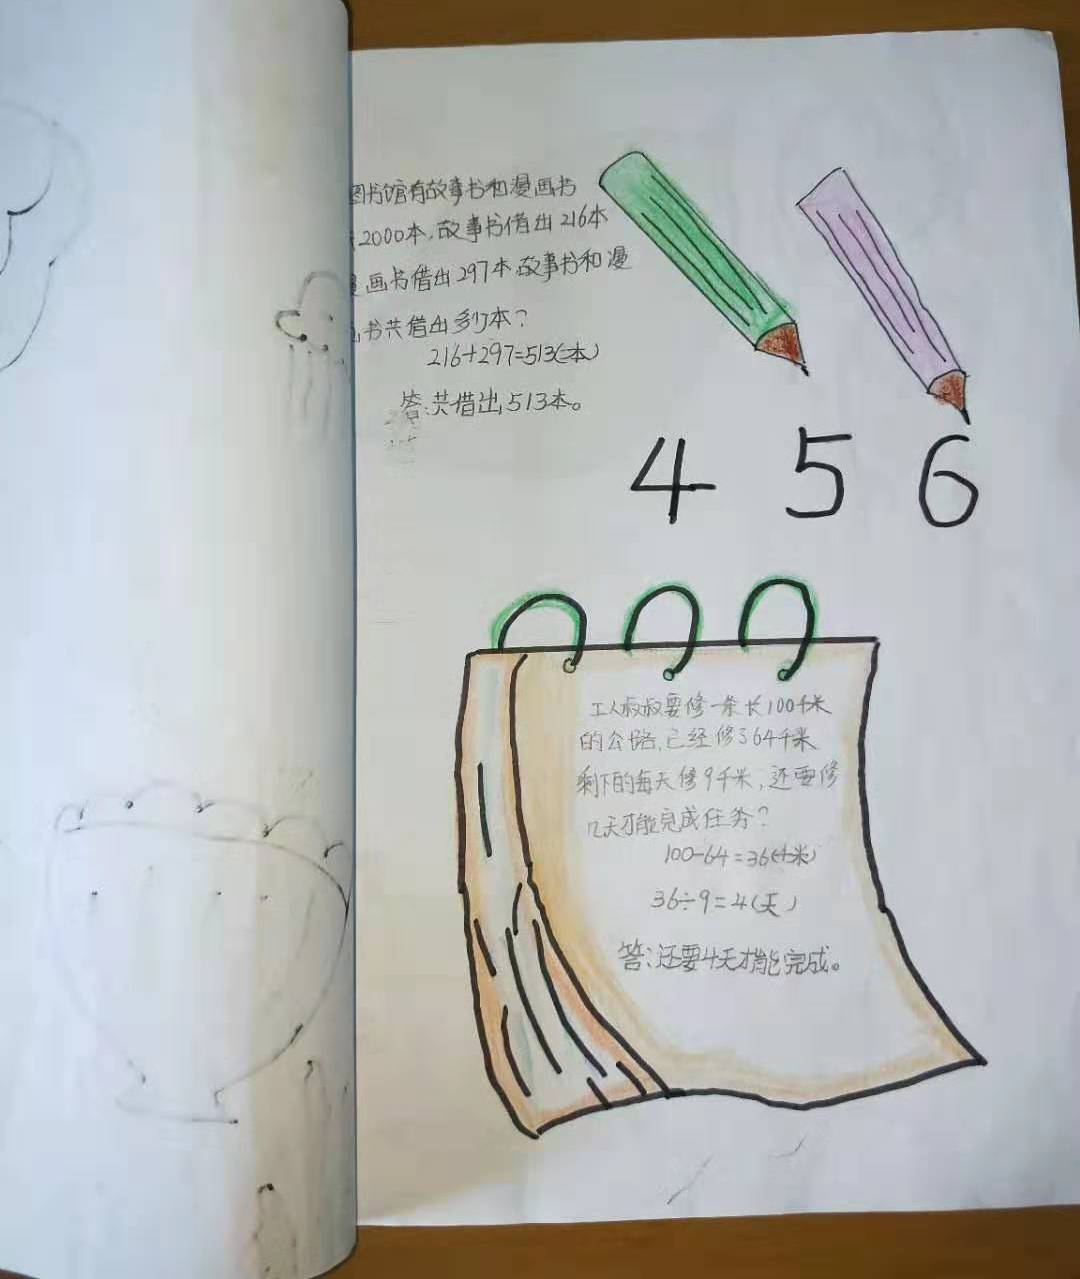 图书馆有故事书和漫画书
2000本,故事书借出216本
画书借出297本故事书和漫
书共借出多少本?
216+297=513(本)
答:共借出513本。
4 5 6
工人叔叔要修一条长100千米
的公路,已经修了64千米
剩下的每天修9千米,还要修
几天才能完成任务?
100-64=36(千米)
36÷9=4(天)
答:还要4天才能完成。